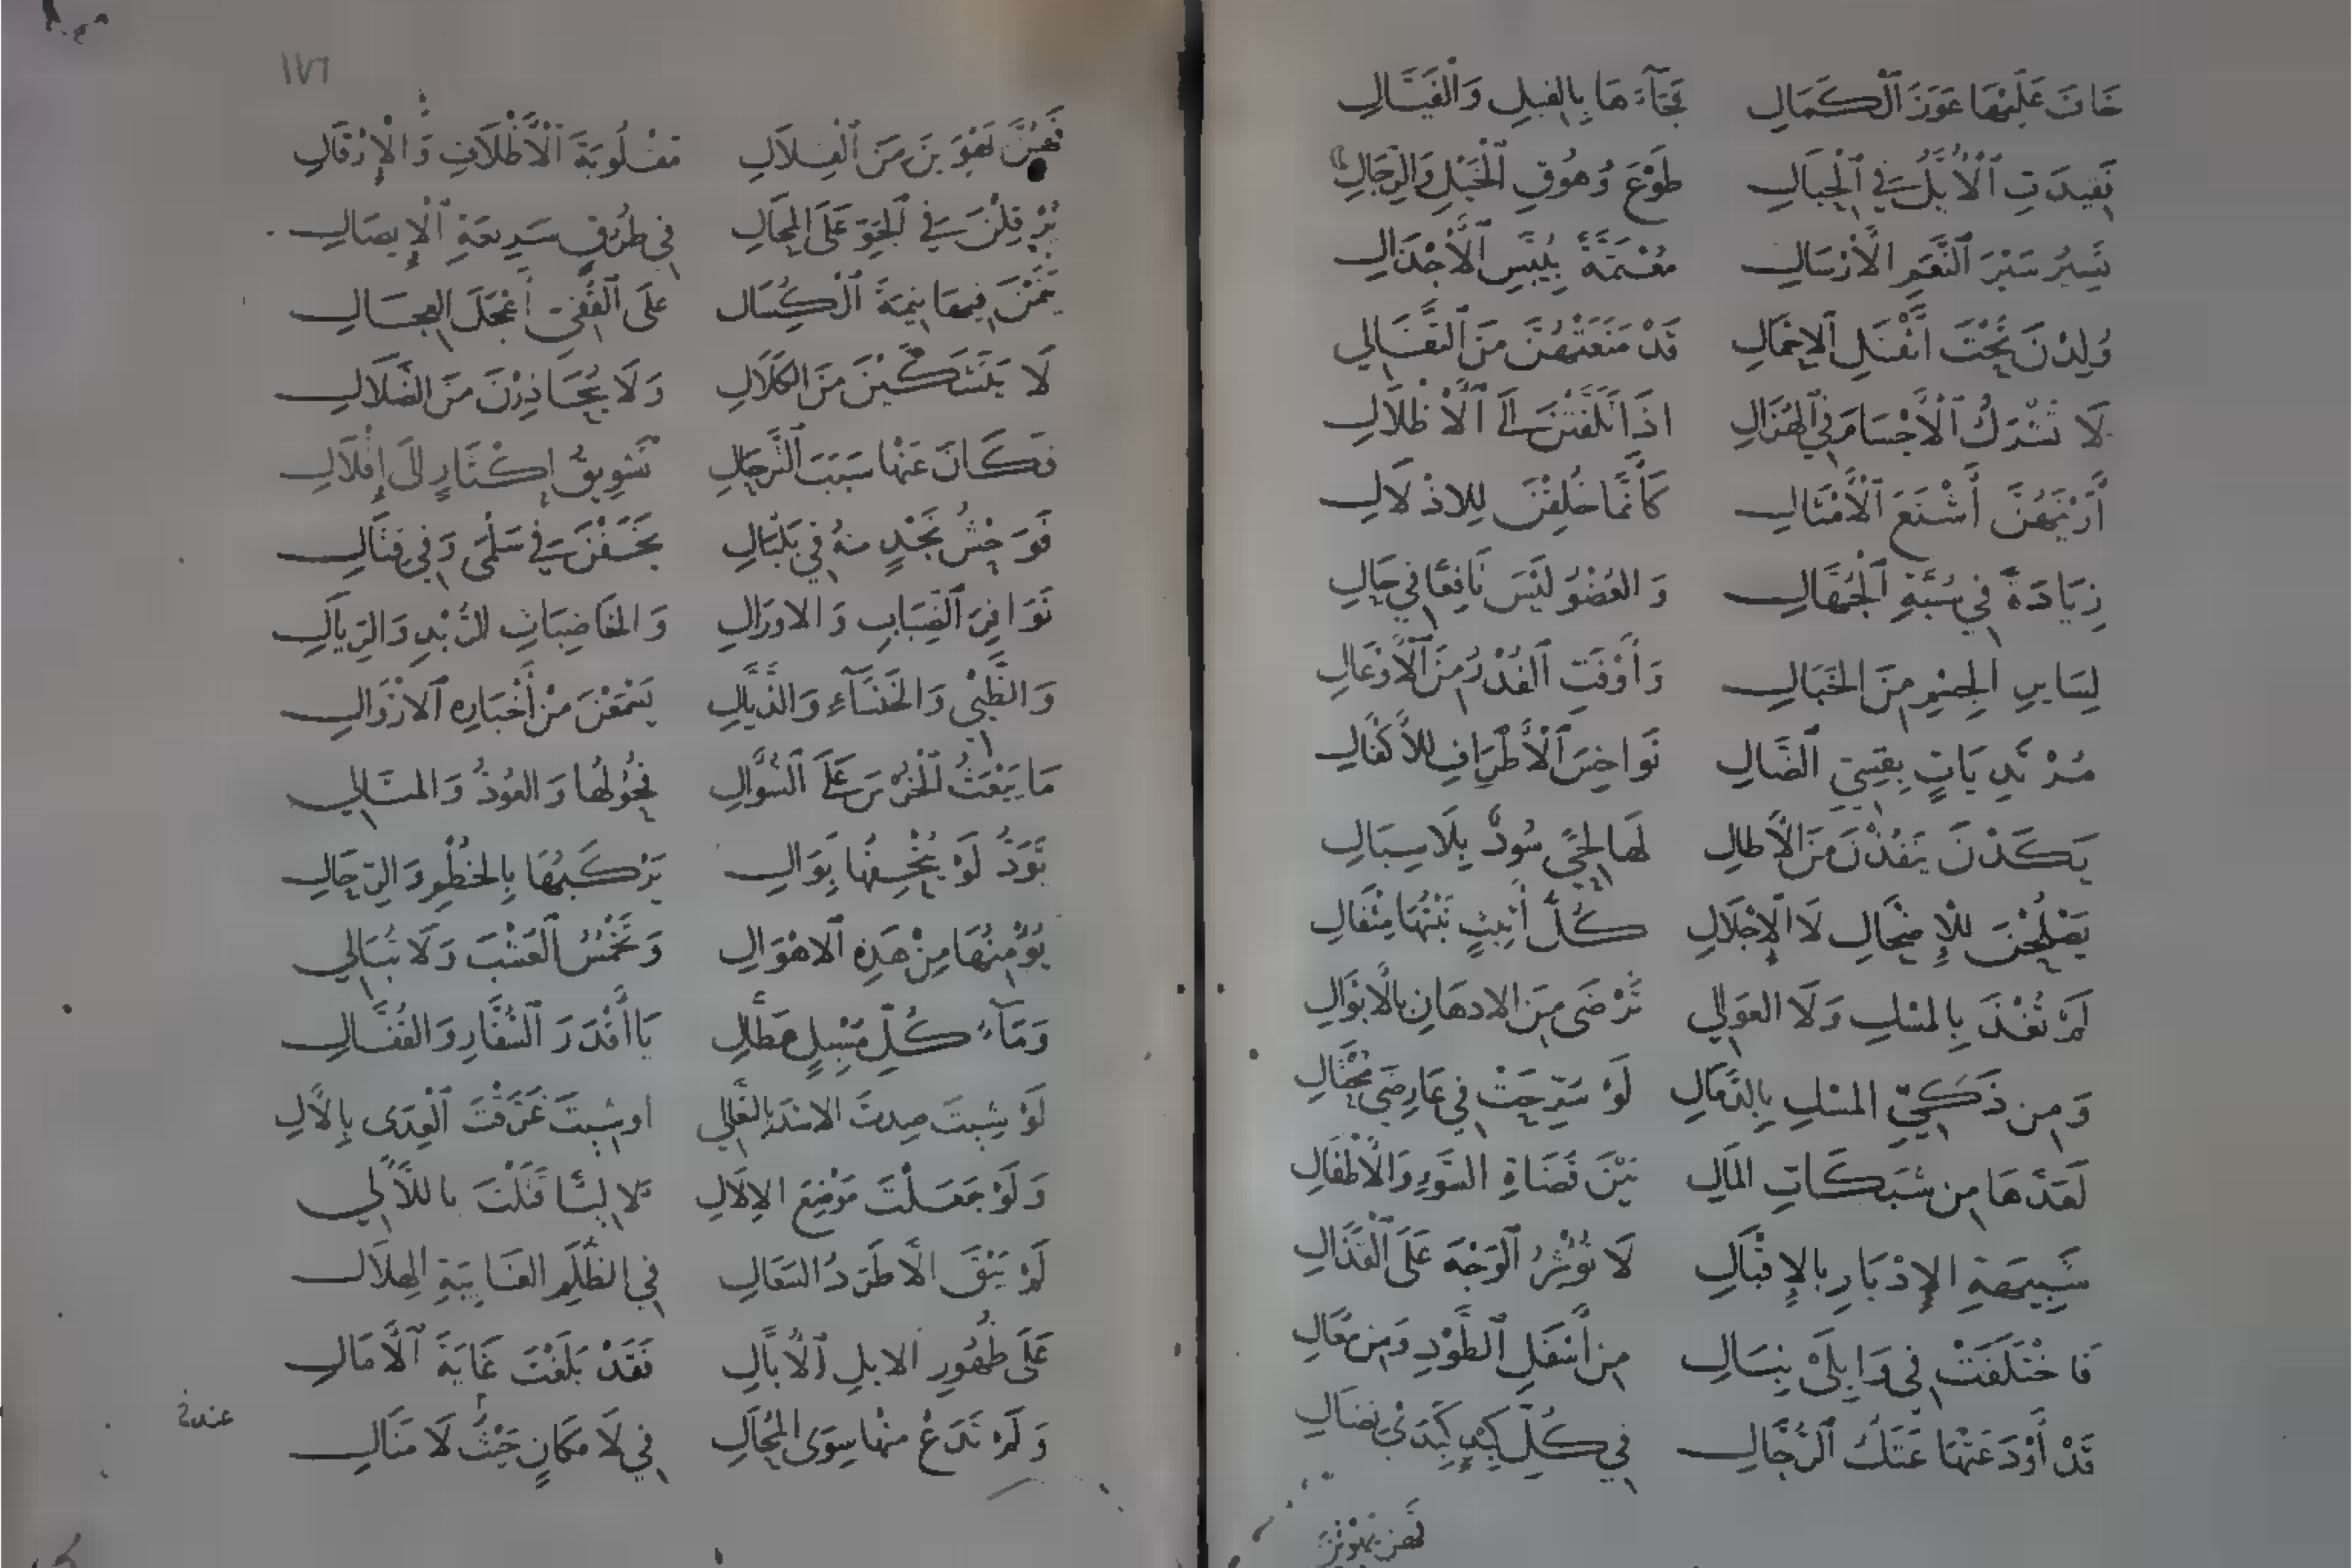 خَافَ عَلَيْهَا عَوَزَ ٱلْكَمَالِ فَجَآءَهَا بِالفِيلِ وَالْفَيَّالِ
فَقِيدَتِ ٱلْأُيَّلُ فِي ٱلْحِبَالِ طَوْعَ وُهُوقِ ٱلْخَيْلِ وَالرِّجَالِ
تَسِيرُ سَيْرَ ٱلنَّعَمِ الْأَرْسَالِ مُعْتَمَّةً بِيُبَّسِ ٱلْأَجْذَالِ
وُلِدْنَ تَحْتَ أَثْقَلِ ٱلاحْمَالِ قَدْ مَنَعَتْهُنَّ مِنَ ٱلتَّفَالِي
لَا تَشْرَكُ ٱلْأَجْسَامَ فِي ٱلهُزَالِ اذَا تَلَفَّتْنَ إِلَى ٱلْأَظْلَالِ
أَرَيْنَهُنَّ أَشْنَعَ ٱلْأَمْثَالِ كَأَنَّمَا خُلِقْنَ لِلاذْلَالِ
زِيَادَةً فِي سُبَّةِ ٱلْجُهَّالِ وَالعُضْوُ لَيْسَ نَافِعًا فِي حَالِ
لِسَايِرِ ٱلجِسْمِ مِنَ الخَبَالِ وَأَوْفَتِ ٱلفُدْرُ مِنَ ٱلْأَوْعَالِ
مُرْتَدِيَاتٍ بِقِسِيِّ ٱلضَّالِ نَوَاخِسَ ٱلْأَطْرَافِ لِلأَكْفَالِ
يَكَدْنَ يَنْفُذْنَ مِنَ الآطَالِ لَهَا لِحًى سُودٌ بِلَا سِبَالِ
يَصْلُحْنَ لِلْإِضْحَاكِ لَا ٱلْإِجْلَالِ كُلُّ أَثِيثٍ نَبْتُهَا مِتْفَالِ
لَمْ تُغْذَ بِالمسْكِ وَلَا الغَوَالِي تَرْضَى مِنَ الادهَانِ بِالأَبْوَالِ
وَمِن ذَكِيِّ المسْكِ بِالدَّمَالِ لَوْ سُرِّحَتْ فِي عَارِضَيْ مُحْتَالِ
لَعَدَّهَا مِن شَبَكَاتِ المَالِ بَيْنَ قُضَاةِ السُّوءِ وَالْأَطْفَالِ
شَبِيهَةِ الإِدْبَارِ بِالإِقْبَالِ لَا تُؤْثِرُ ٱلوَجْهَ عَلَى ٱلْقَذَالِ
فَاخْتَلَفَتْ فِي وَابِلَيْ نِبَالِ مِن أَسْفَلِ ٱلطَّوْدِ وَمِن مُعَالِ
قَدْ أَوْدَعَتْهَا عَتَلُ ٱلرُّجَّالِ فِي كُلِّ كِبْدٍ كَبِدَيْ نِصَالِ
فَهن يهوين
١٧٦
فَهُنَّ يَهْوِينَ مِنَ ٱلْقِلَالِ مَقْلُوبَةَ ٱلْأَظْلَافِ وَالْإِرْقَالِ
يُرْقِلْنَ فِي ٱلجَوِّ عَلَى المَحَالِ فِي طُرُقٍ سَرِيعَةِ ٱلْإِيصَالِ
يَنَمْنَ فِيهَا نِيمَةَ ٱلْكُسَالِ عَلَى ٱلْقُفِيِّ أَعْجَلَ العِجَالِ
لَا يَتَشَكَّيْنَ مِنَ الكَلَالِ وَلَا يُحَاذِرْنَ مِنَ الضَّلَالِ
فكَانَ عَنْهَا سَبَبَ ٱلتَّرْحَالِ تَشْوِيقُ إِكْثَارٍ إِلَى إِقْلَالِ
فَوَحْشُ نَجْدٍ منهُ فِي بَلْبَالِ يَخَفْنَ فِي سَلْمَى وَفِي قِتَالِ
نَوَافِرَ ٱلضِّبَابِ وَالاورَالِ وَالخَاضِبَاتِ الرُّبْدِ وَالرِّيَالِ
وَالظَّبْيِ وَالخَنْسَآءِ وَالذَّيَّالِ يَسْمَعْنَ مِنْ أَخْبَارِهِ ٱلازْوَالِ
مَا يَبْعَثُ ٱلْخُرْسَ عَلَى ٱلسُّوَالِ فُحُولُهَا وَالعُوذُ وَالمتَالِي
تَوَدُّ لَوْ يُتْحِفُهَا بِوَالِ يَرْكَبُهَا بِالخُطْمِ وَالرِّحَالِ
يُؤْمِنُهَا مِنْ هَذِهِ ٱلاهْوَالِ وَيَخْمُسُ ٱلعُشْبَ وَلَا تُبَالِي
وَمَآءَ كُلِّ مُسْبِلٍ هَطَّالِ يَا أَقْدَرَ ٱلسُّفَّارِ وَالقُفَّالِ
لَوْ شِيتَ صِدتَ الاسْدَ بِالثَّعَالِي اوشِيتَ غَرَّقْتَ ٱلْعِدَى بِالْآلِ
وَلَوْ جَعَلْتَ مَوْضِعَ الإِلَالِ لَالِيًا قَتَلْتَ باللَّآلِي
لَمْ يَبْقَ إلَّا طَرَدُ السَّعَالِ فِي الظُّلَمِ الغَايِبَةِ الهِلَالِ
عَلَى ظُهُورِ ٱلابلِ ٱلْأُبَّالِ فَقَدْ بَلَغْتَ غَايَةَ ٱلْآمَالِ
وَلَمْ تَدَعْ منْهَا سِوَى المُحَالِ فِي لَا مَكَانٍ حَيْثُ لَا مَنَالِ